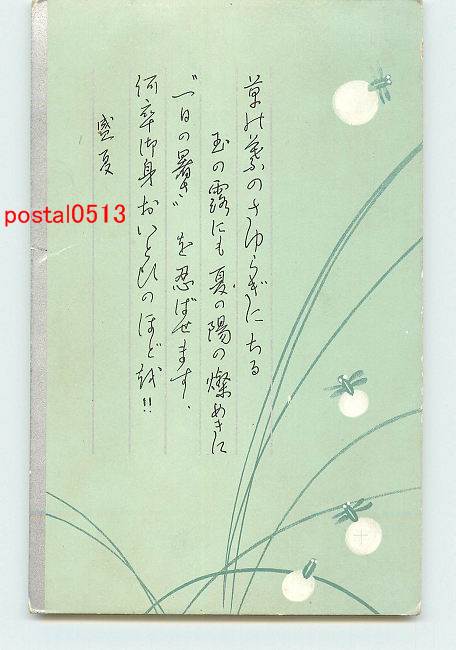 草の葉のさゆらぎにちる
玉の露にも夏の陽の燦めきに
"一日の暑さ"を忍ばせます、
何卒御身おいとひのほど越!!
盛夏
postal0513